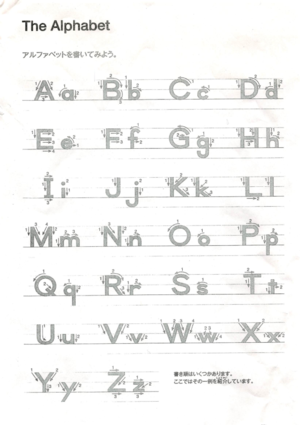 The Alphabet
アルファベットを書いてみよう。
Aa Bb Cc Dd
Ee Ff Gg Hh
Ii Jj Kk Ll
Mm Nn Oo Pp
Qq Rr Ss Tt
Uu Vv Ww Xx
Yy Zz
書き順はいくつかあります。
ここではその一例を紹介しています。